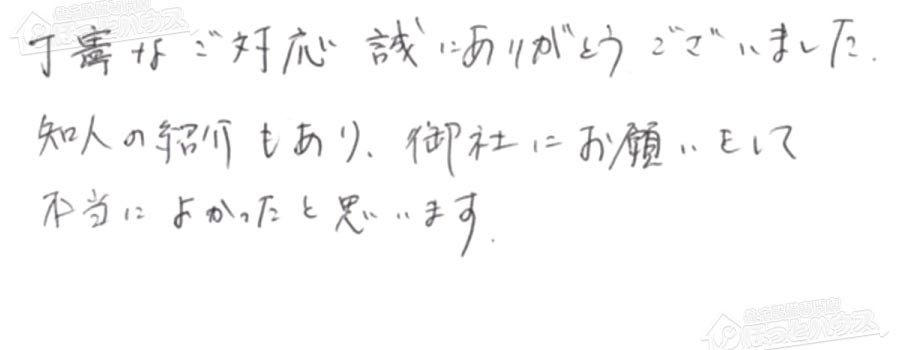 丁寧なご対応 誠にありがとうございました.
知人の紹介もあり、御社にお願いをして
本当によかったと思います.
住宅設備専門店
ほっとハウス
ほっとハウス